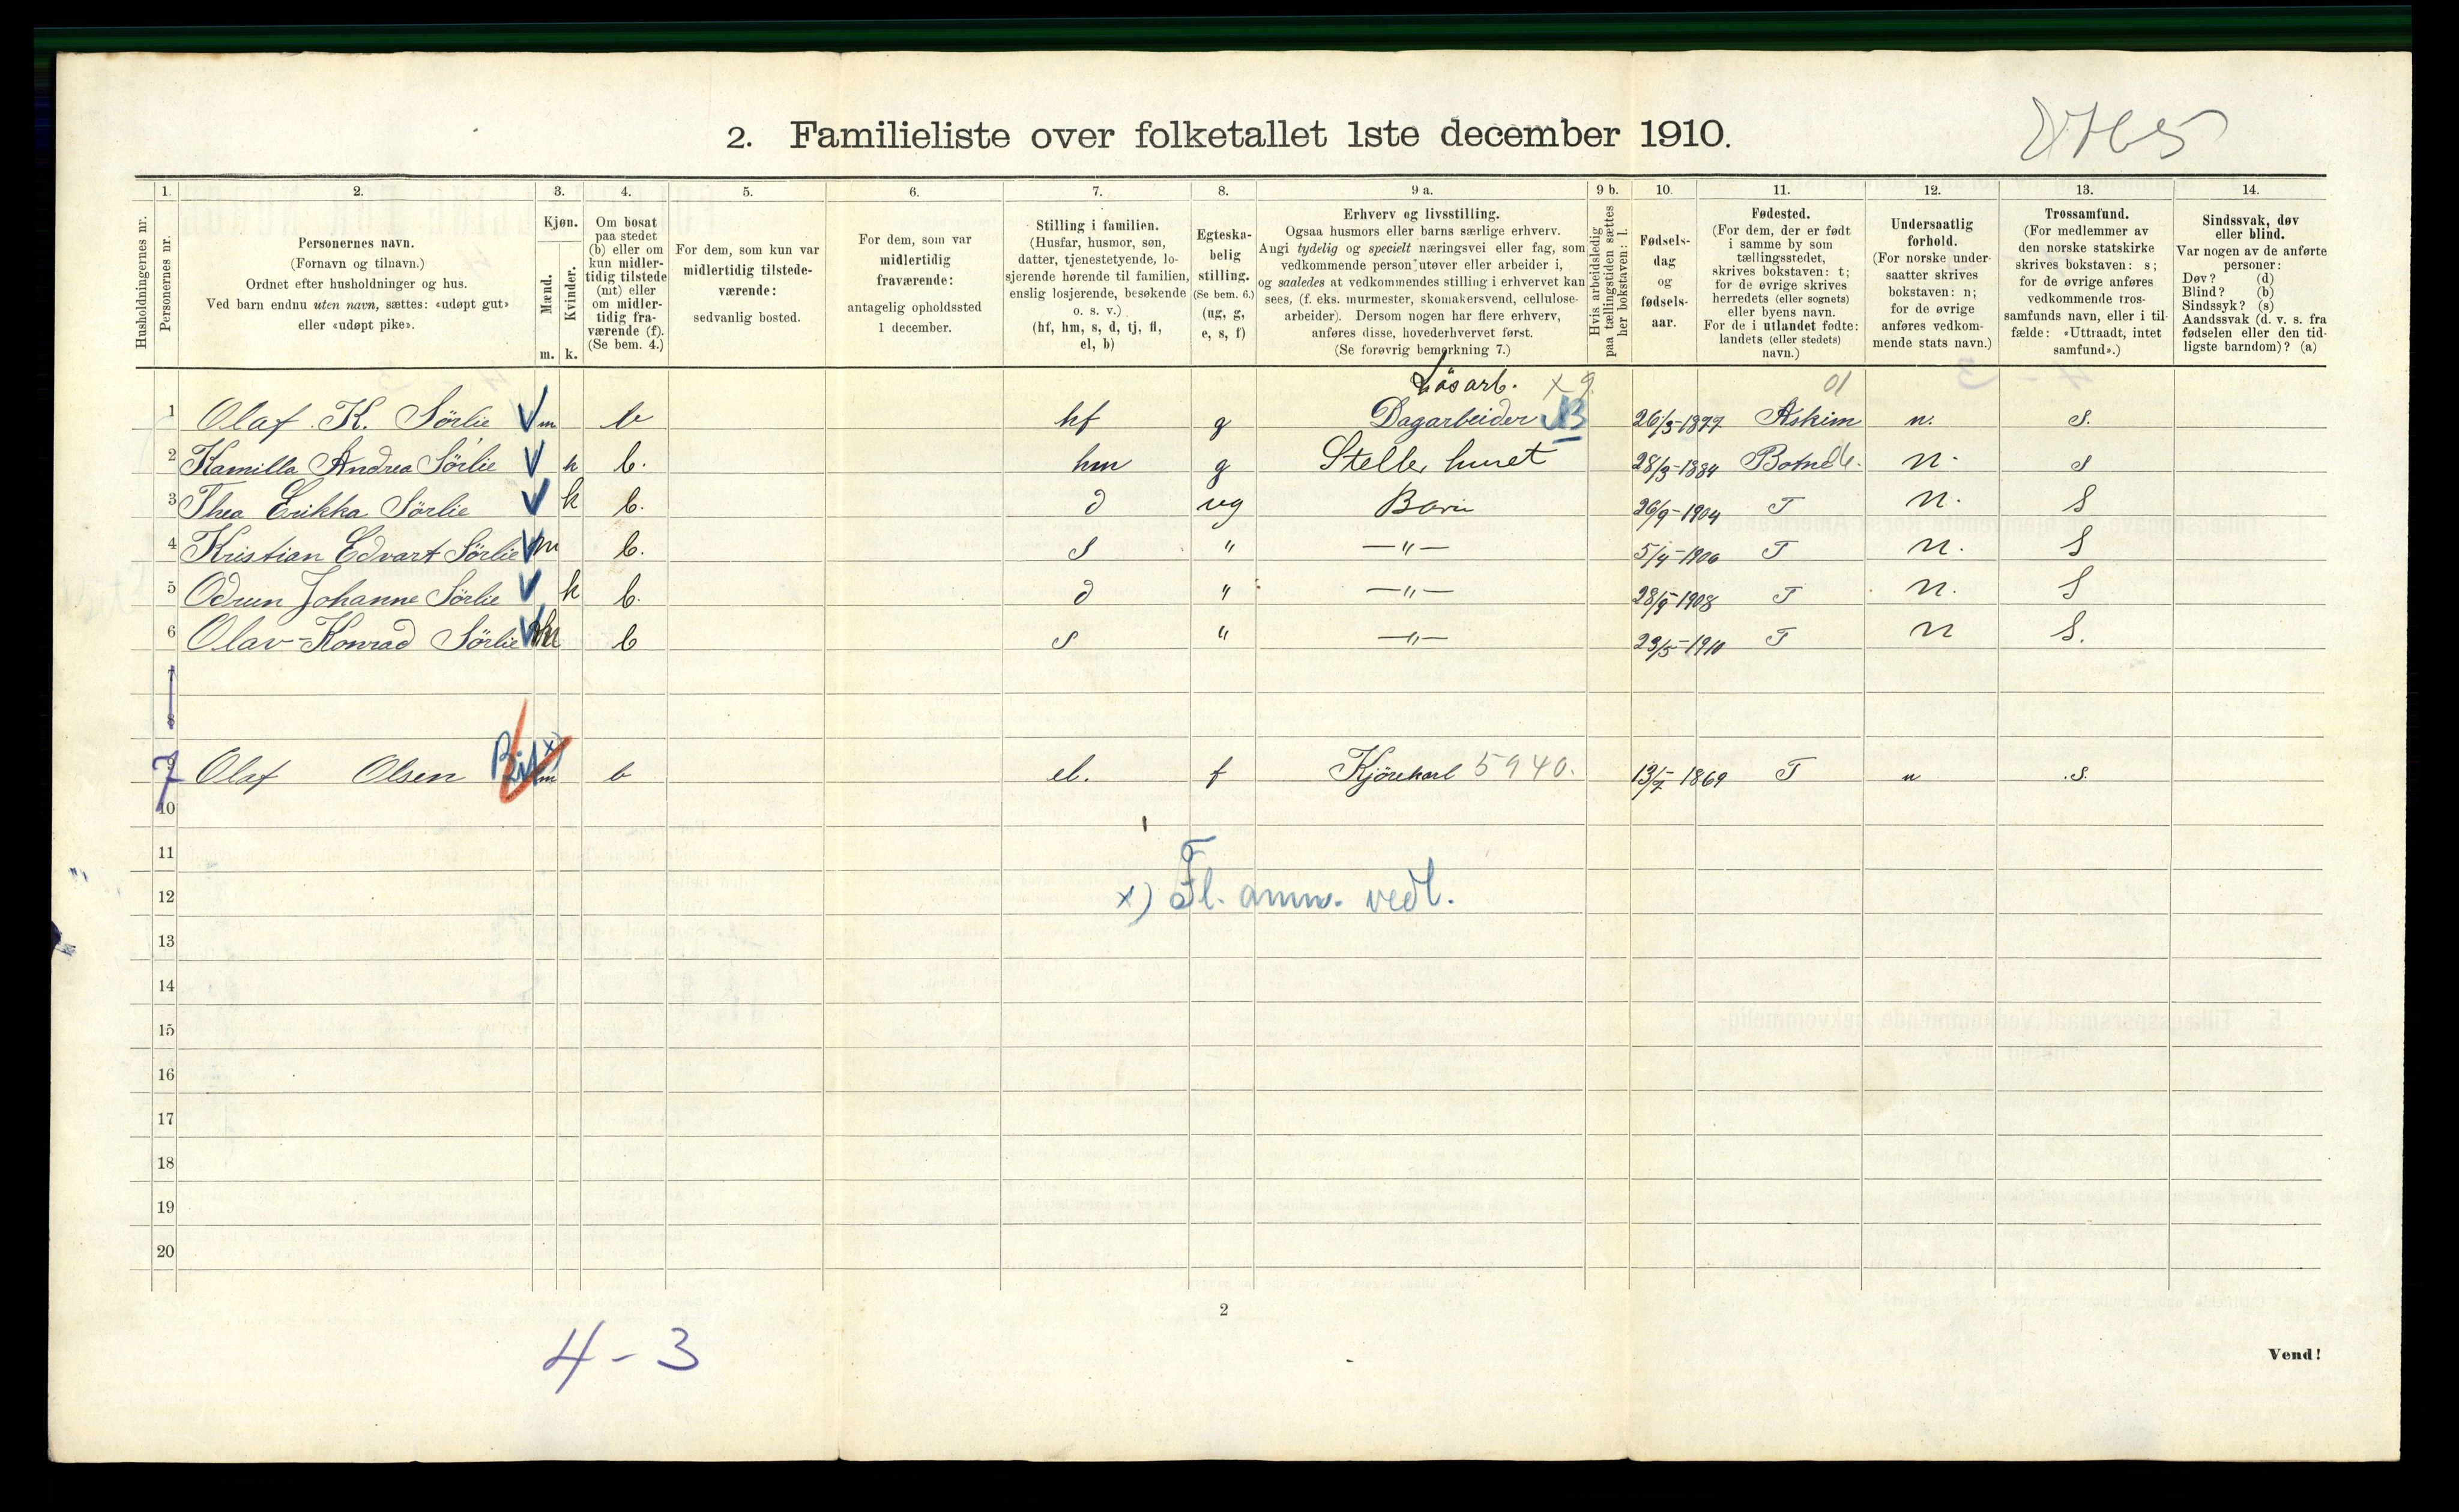 2. Familieliste over folketallet 1ste december 1910.
1. 2. 3. 4. 5. 6. 7. 8. 9 a. 9 b. 10. 11. 12. 13. 14.
Husholdningernes nr.
Personernes nr.
Personernes navn.
(Fornavn og tilnavn.)
Ordnet efter husholdninger og hus.
Ved barn endnu uten navn, sættes: «udøpt gut»
eller «udøpt pike».
Kjøn.
Mænd.
Kvinder.
m. k.
Om bosat
paa stedet
(b) eller om
kun midler-
tidig tilstede
(mt) eller
om midler-
tidig fra-
værende (f).
(Se bem. 4.)
For dem, som kun var
midlertidig tilstede-
værende:
sedvanlig bosted.
For dem, som var
midlertidig
fraværende:
antagelig opholdssted
1 december.
Stilling i familien.
(Husfar, husmor, søn,
datter, tjenestetyende, lo-
sjerende hørende til familien,
enslig losjerende, besøkende
o. s. v.)
(hf, hm, s, d, tj, fl,
el, b)
Egteska-
belig
stilling.
(Se bem. 6.)
(ug, g,
e, s, f)
Erhverv og livsstilling.
Ogsaa husmors eller barns særlige erhverv.
Angi tydelig og specielt næringsvei eller fag, som
vedkommende person utøver eller arbeider i,
og saaledes at vedkommendes stilling i erhvervet kan
sees, (f. eks. murmester, skomakersvend, cellulose-
arbeider). Dersom nogen har flere erhverv,
anføres disse, hovederhvervet først.
(Se forøvrig bemerkning 7.)
Hvis arbeidsledig
paa tællingstiden sættes
her bokstaven: l.
Fødsels-
dag
og
fødsels-
aar.
Fødested.
(For dem, der er født
i samme by som
tællingsstedet,
skrives bokstaven: t;
for de øvrige skrives
herredets (eller sognets)
eller byens navn.
For de i utlandet fødte:
landets (eller stedets)
navn.)
Undersaatlig
forhold.
(For norske under-
saatter skrives
bokstaven: n;
for de øvrige
anføres vedkom-
mende stats navn.)
Trossamfund.
(For medlemmer av
den norske statskirke
skrives bokstaven: s;
for de øvrige anføres
vedkommende tros-
samfunds navn, eller i til-
fælde: «Uttraadt, intet
samfund».)
Sindssvak, døv
eller blind.
Var nogen av de anførte
personer:
Døv? (d)
Blind? (b)
Sindssyk? (s)
Aandssvak (d. v. s. fra
fødselen eller den tid-
ligste barndom)? (a)
Løsarb. x 9 01
1 Olaf K. Sörlie m b hf g Dagarbeider 26/3-1877 Askim n. s.
2 Kamilla Andrea Sörlie k b. hm g Steller huset 28/3-1884 Botne n. s
3 Thea Erikka Sörlie k b. d ug Barn 26/9-1904 T n. S
4 Kristian Edvart Sörlie m b. s " —"— 5/4-1906 T n. S
5 Odrun Johanne Sörlie k b. d " —"— 1908 T n. S
6 Olav Konrad Sörlie m b s " —"— 23/5-1910 T n S.
7
8
7 9 Olaf Olsen x) m b el. f Kjörekarl 5940. 1869 T n s.
10
11
12 x) Fl. anm. vedl.
13
14
15
16
17
18
19
20
2
4-3
Vend!